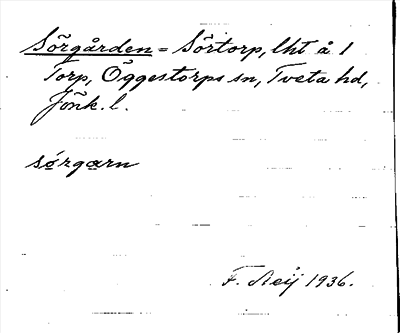 Sörgården = Sörtorp, lht å 1
Torp, Öggestorps sn, Tveta hd,
Jönk. l.
sørgarn
F. 1936.